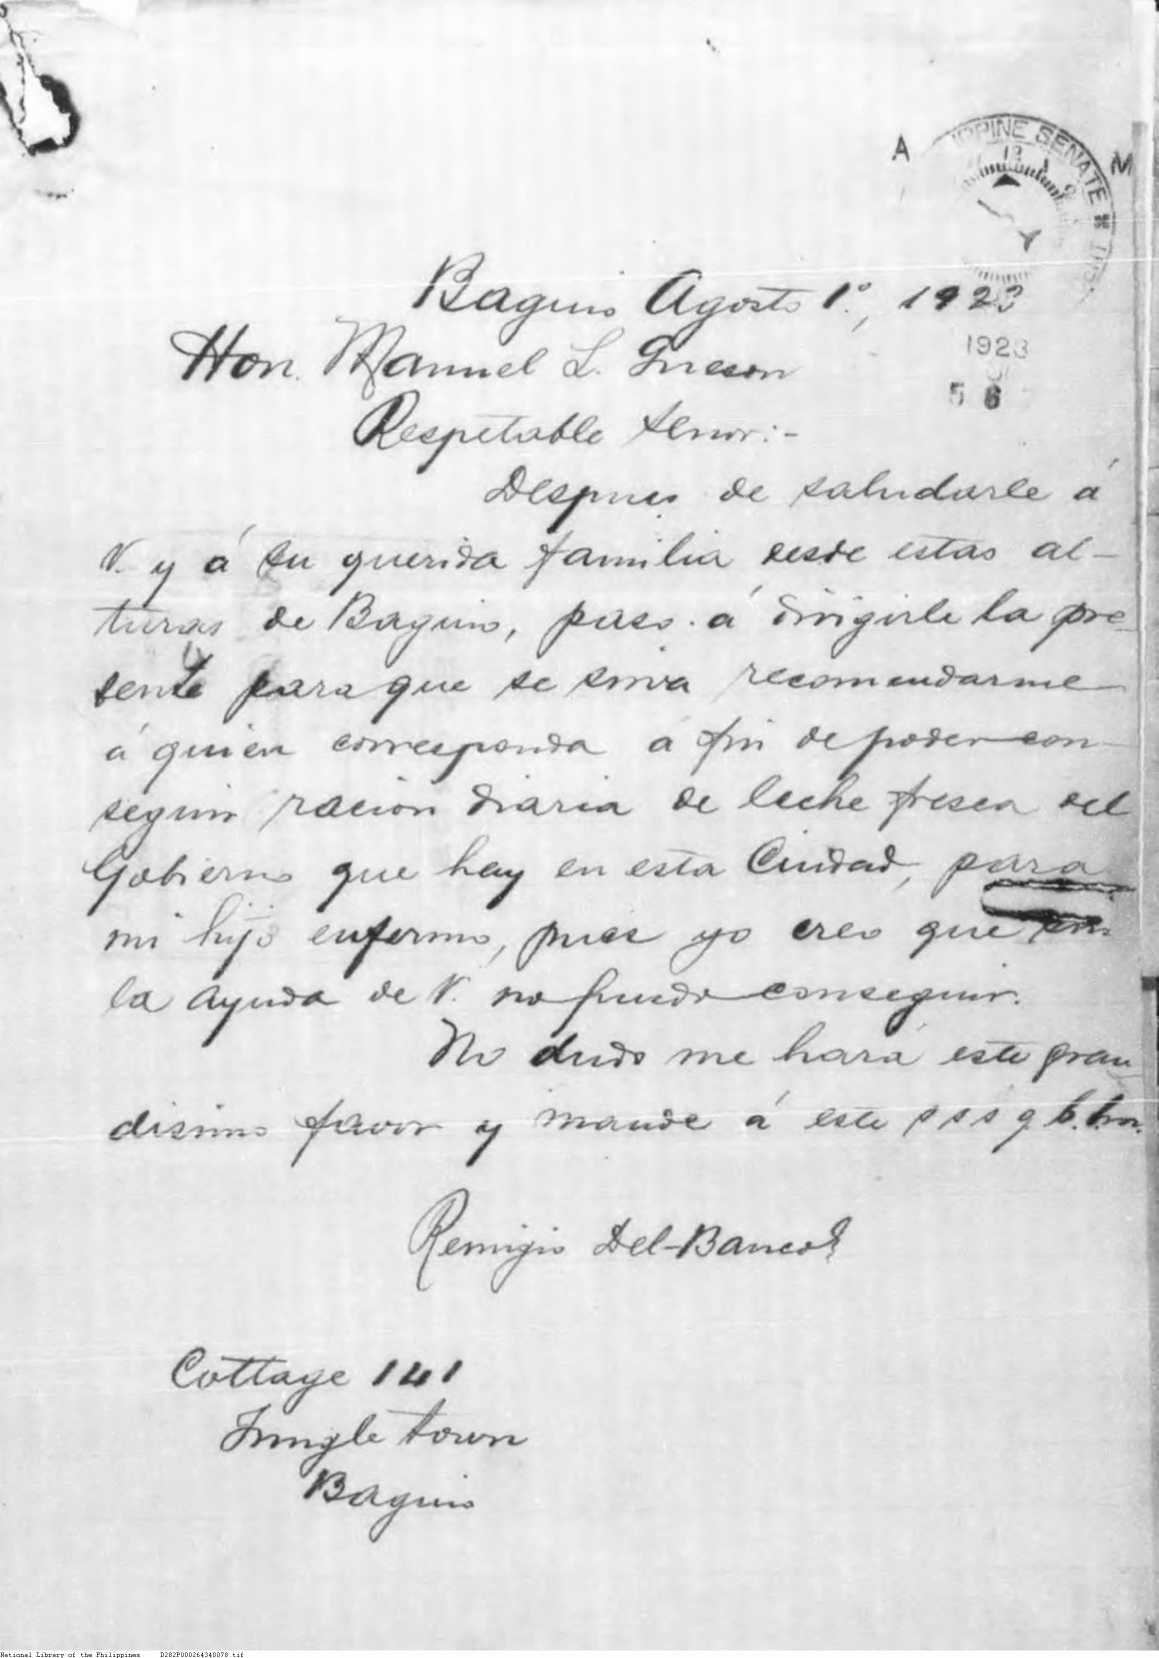 A PPINE SENATE M
Baguio Agosto 1º., 1923
1923
Hon. Manuel L. Quezon
5 6
Respetable Señor:-
Despues de saludarle á
V. y á su querida familia desde estas al-
turas de Baguio, paso á dirigirle la pre-
sente para que se sirva recomendarme
á quien corresponda á fin de poder con-
seguir racion diaria de leche fresca del
Gobierno que hay en esta Ciudad, para
mi hijo enfermo, pues yo creo que sin
la ayuda de V. no puedo conseguir.
No dudo me hará este gran-
disimo favor y mande á este s s s q. b. s. m.
Remigio Del-
Cottage 141
Jungle town
Baguio
National Library of the Philippines D282P000264340078.tif